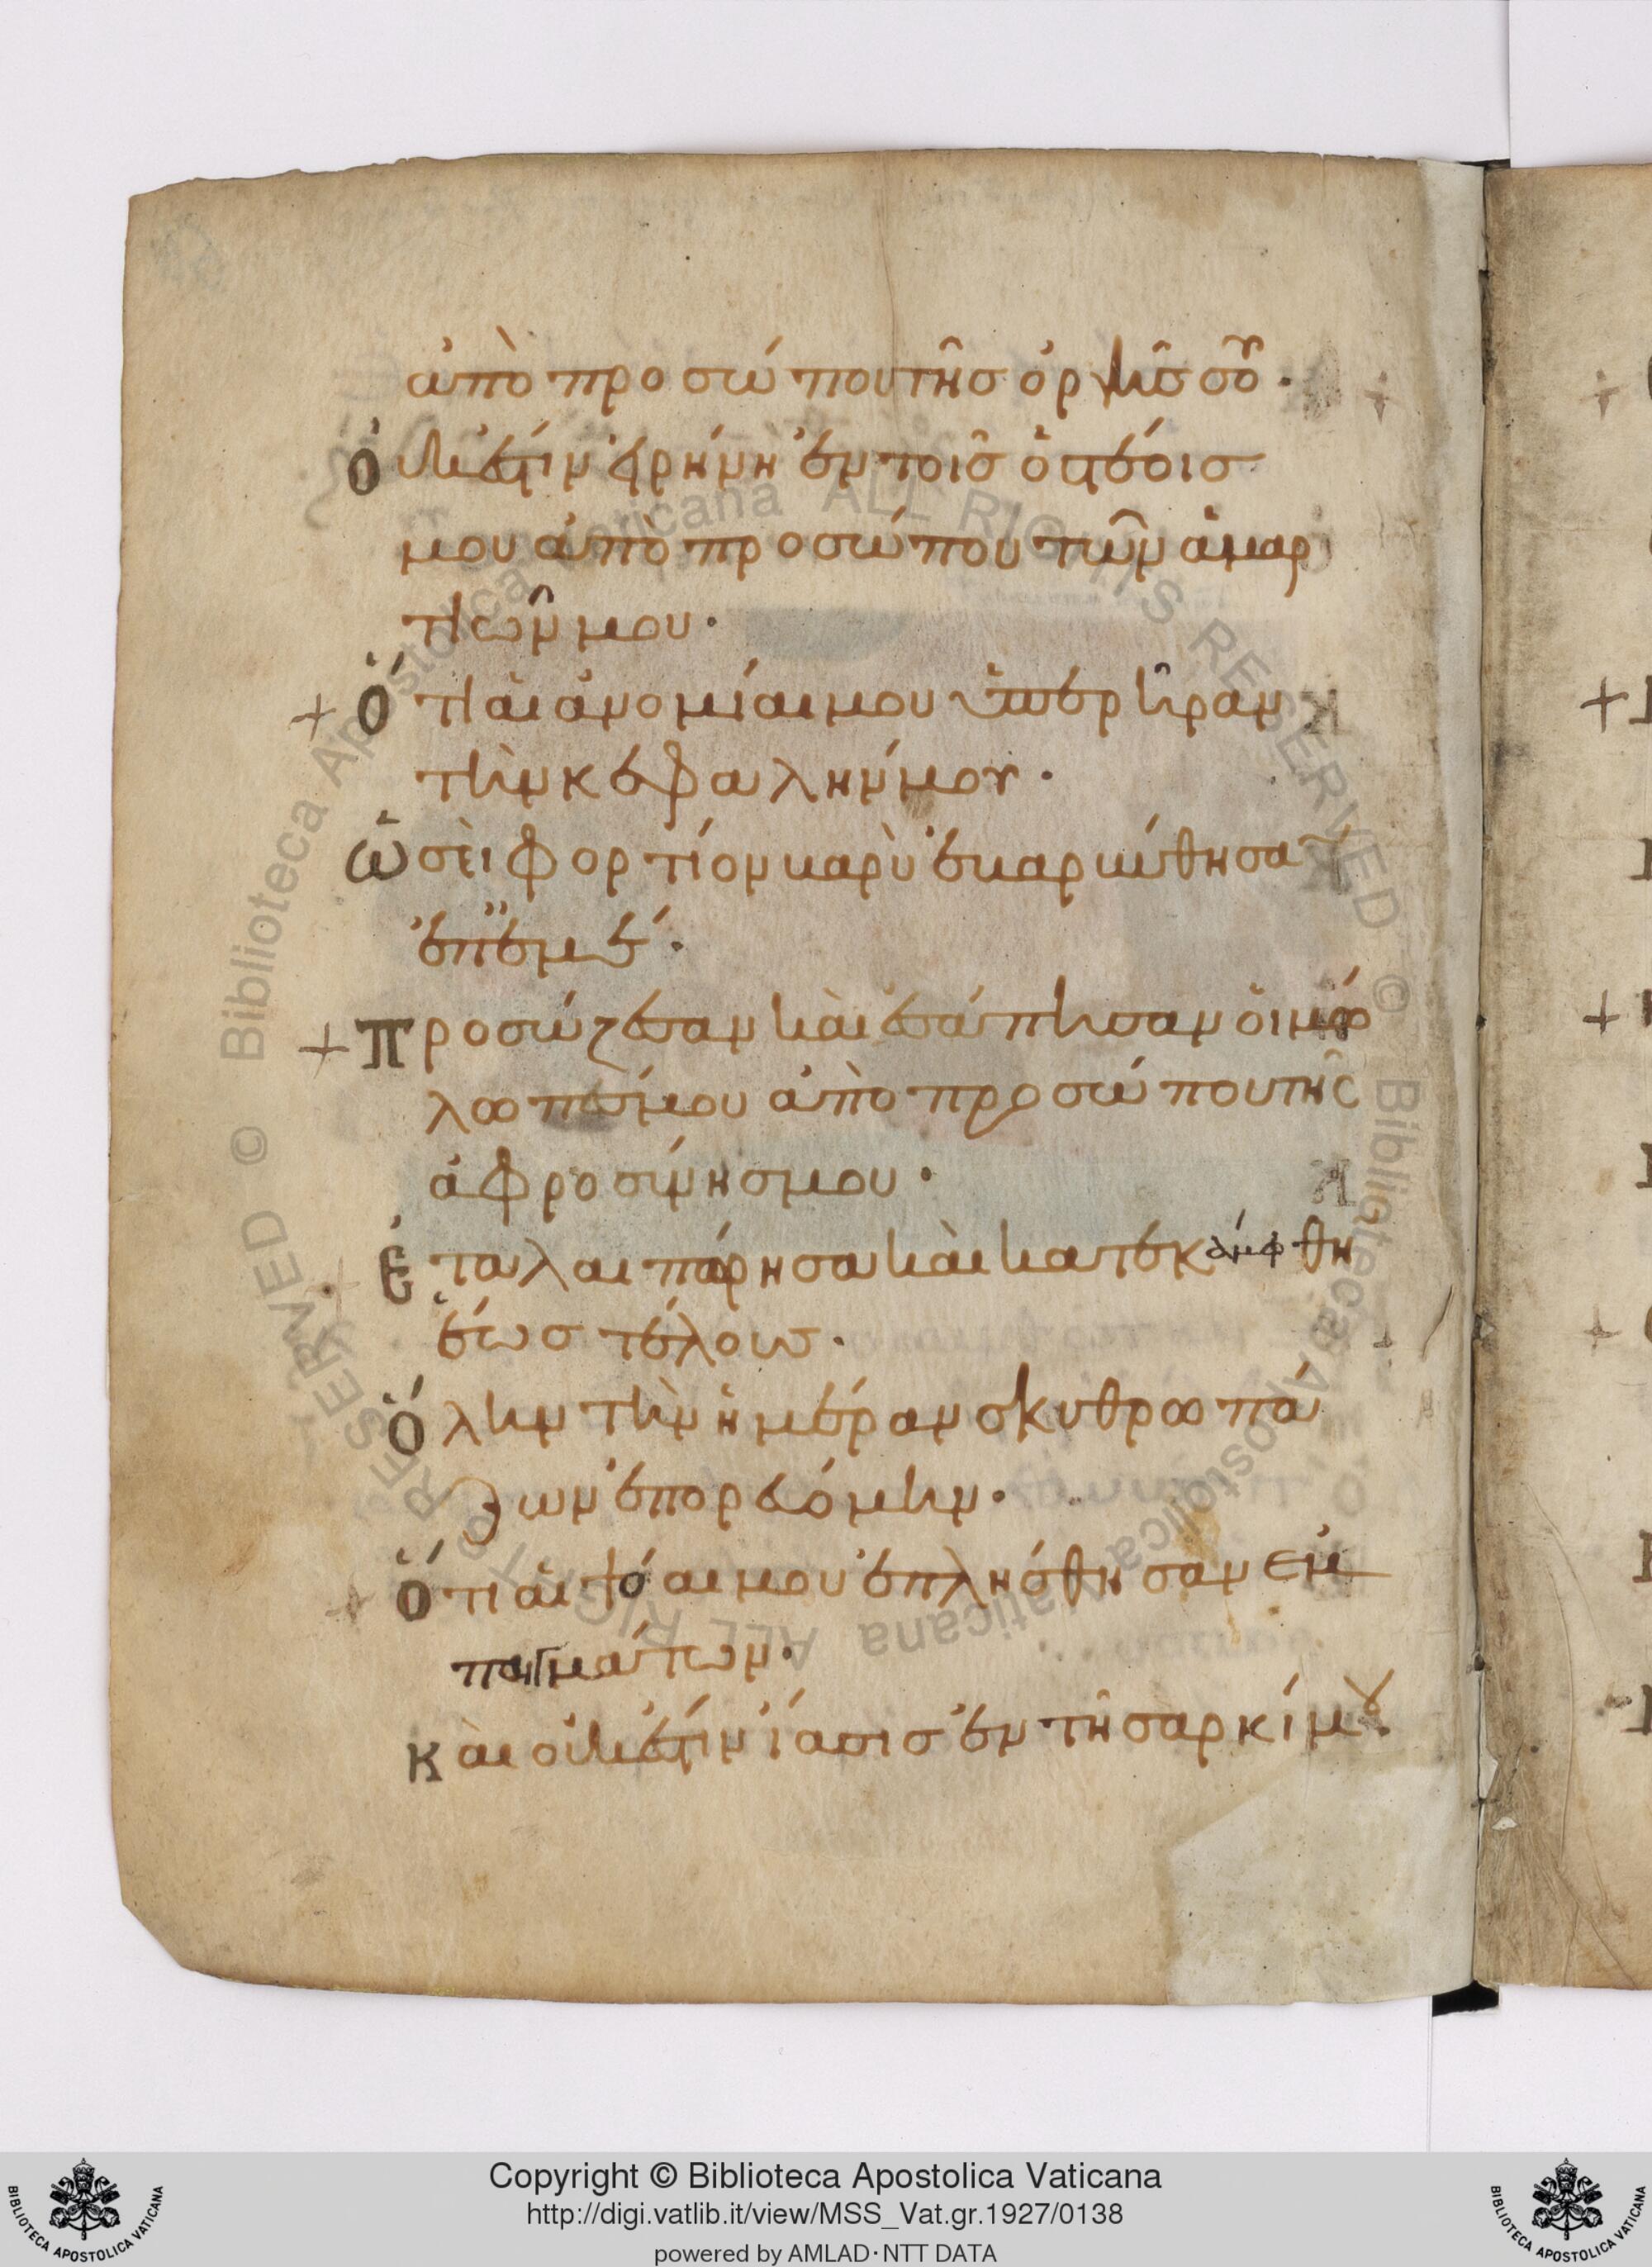 ἀπὸ προσώπου τῆσ ὀργῆσ σοῦ·
Οὐκ ἔστιν εἰρήνη ἐν τοῖσ ὀστέοισ
μου ἀπὸ προσώπου τῶν ἁμαρ
τιῶν μου·
+ Ὅτι αἱ ἀνομίαι μου ὑπερῆραν
τὴν κεφαλήν μου·
Ὡσεὶ φορτίον βαρὺ ἐβαρύνθησαν
ἐπ' ἐμέ·
+ Προσώζεσαν καὶ ἐσάπησαν οἱ μώ
λωπέσ μου ἀπὸ προσώπου τῆς
ἀφροσύνησ μου·
+ Ἐταλαιπώρησα καὶ κατεκάμφθην
ἕωσ τέλουσ·
Ὅλην τὴν ἡμέραν σκυθρωπά
ζων ἐπορευόμην·
+ Ὅτι αἱ ψόαι μου ἐπλήσθησαν ἐμ
παιγμάτων·
Καὶ οὐκ ἔστιν ἴασισ ἐν τῆ σαρκί μου·
Copyright © Biblioteca Apostolica Vaticana
http://digi.vatlib.it/view/MSS_Vat.gr.1927/0138
powered by AMLAD·NTT DATA